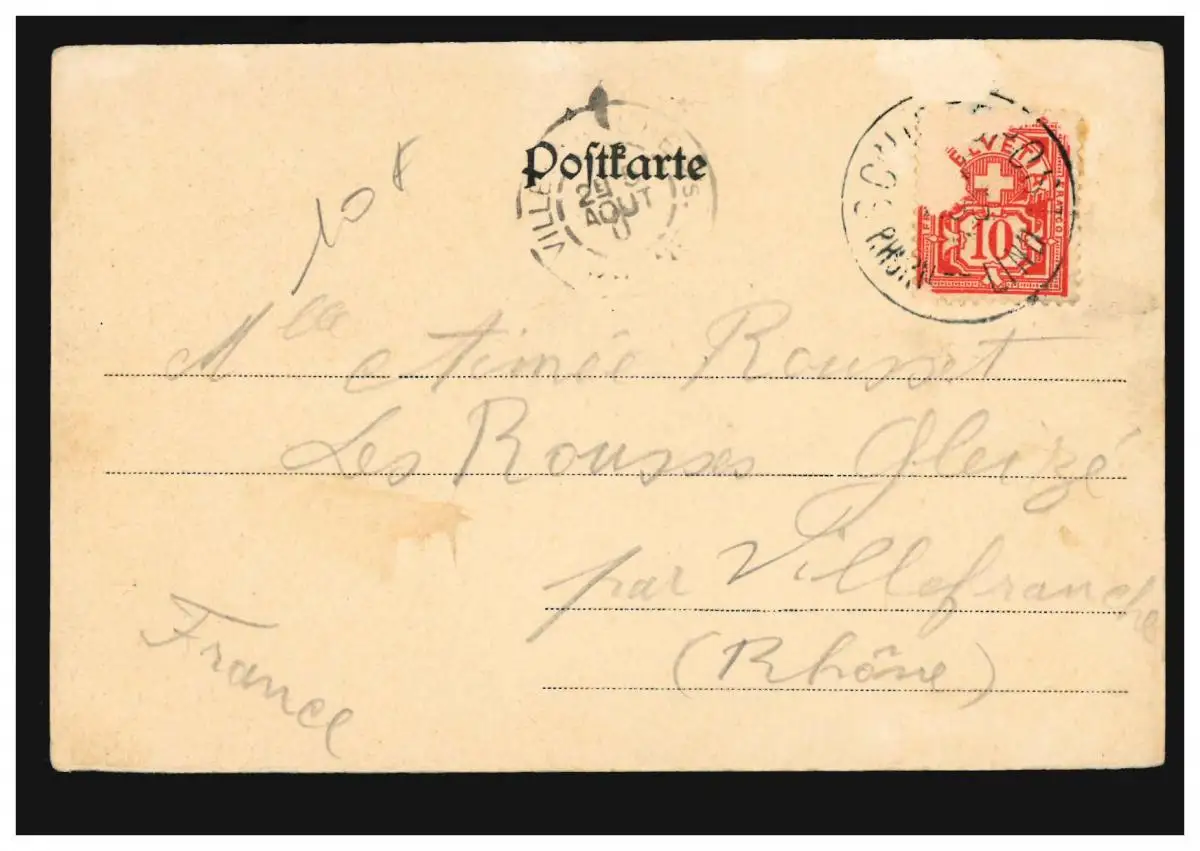 Postkarte
VILLE
29
AOUT
HELVETIA
10
10
Mlle Aimée Rousset
Les Rousses Gleizé
par Villefranche
(Rhône)
France